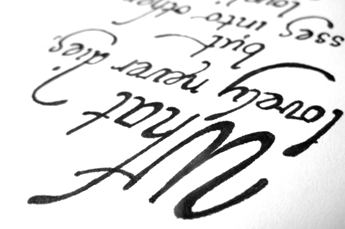 What
lovely never dies,
but
sses into other